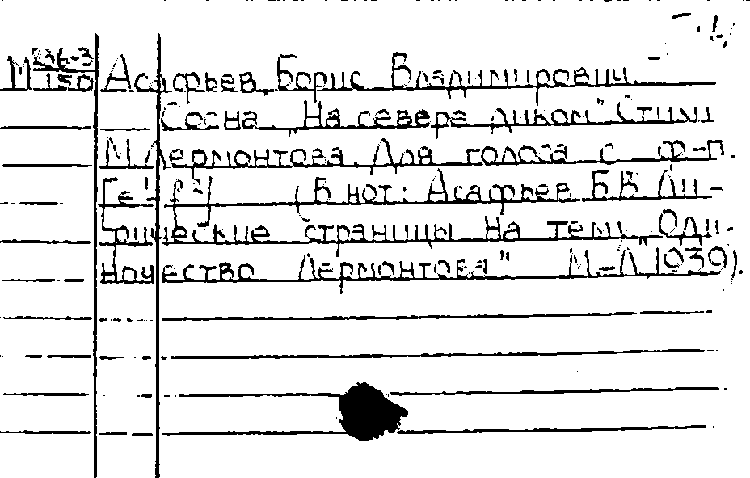 М 236-3/150 Асафьев, Борис Владимирович.
Сосна. „На севере диком" Стихи
М. Лермонтова. Для голоса с ф-п.
[e¹-f²] (В нот: Асафьев Б.В. Ли-
рические страницы на тему „Оди-
ночество Лермонтова" М.-Л, 1939).